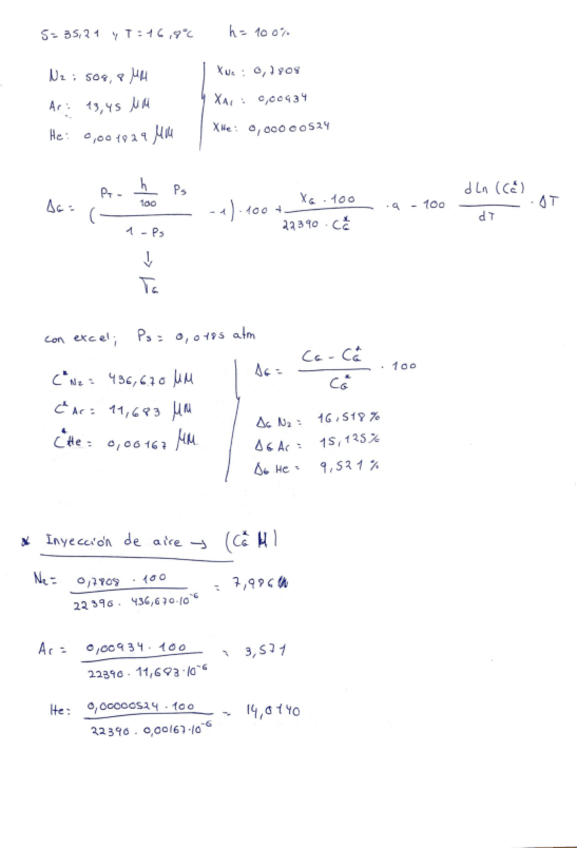 S= 35,21 y T=16,8ºC h= 100%
N2: 508,8 µM
Ar: 13,45 µM
He: 0,001829 µM
XN2: 0,7808
XAr: 0,00934
XHe: 0,00000524
ΔG= ( (PT - h/100 PS) / (1 - PS) - 1) · 100 + (XG · 100) / (22390 · CG*) · a - 100 dLn (CG*) / dT · ΔT
↓
TG
con excel; PS= 0,0185 atm
C*N2= 436,670 µM
C*Ar= 11,683 µM
C*He= 0,00167 µM
ΔG= (CG - CG*) / CG* · 100
ΔG N2= 16,518%
ΔG Ar= 15,125%
ΔG He= 9,521%
* Inyección de aire → (CG* M)
N2= (0,7808 · 100) / (22390 · 436,670·10^-6) = 7,986
Ar= (0,00934 · 100) / (22390 · 11,683·10^-6) = 3,571
He: (0,00000524 · 100) / (22390 · 0,00167·10^-6) = 14,0140